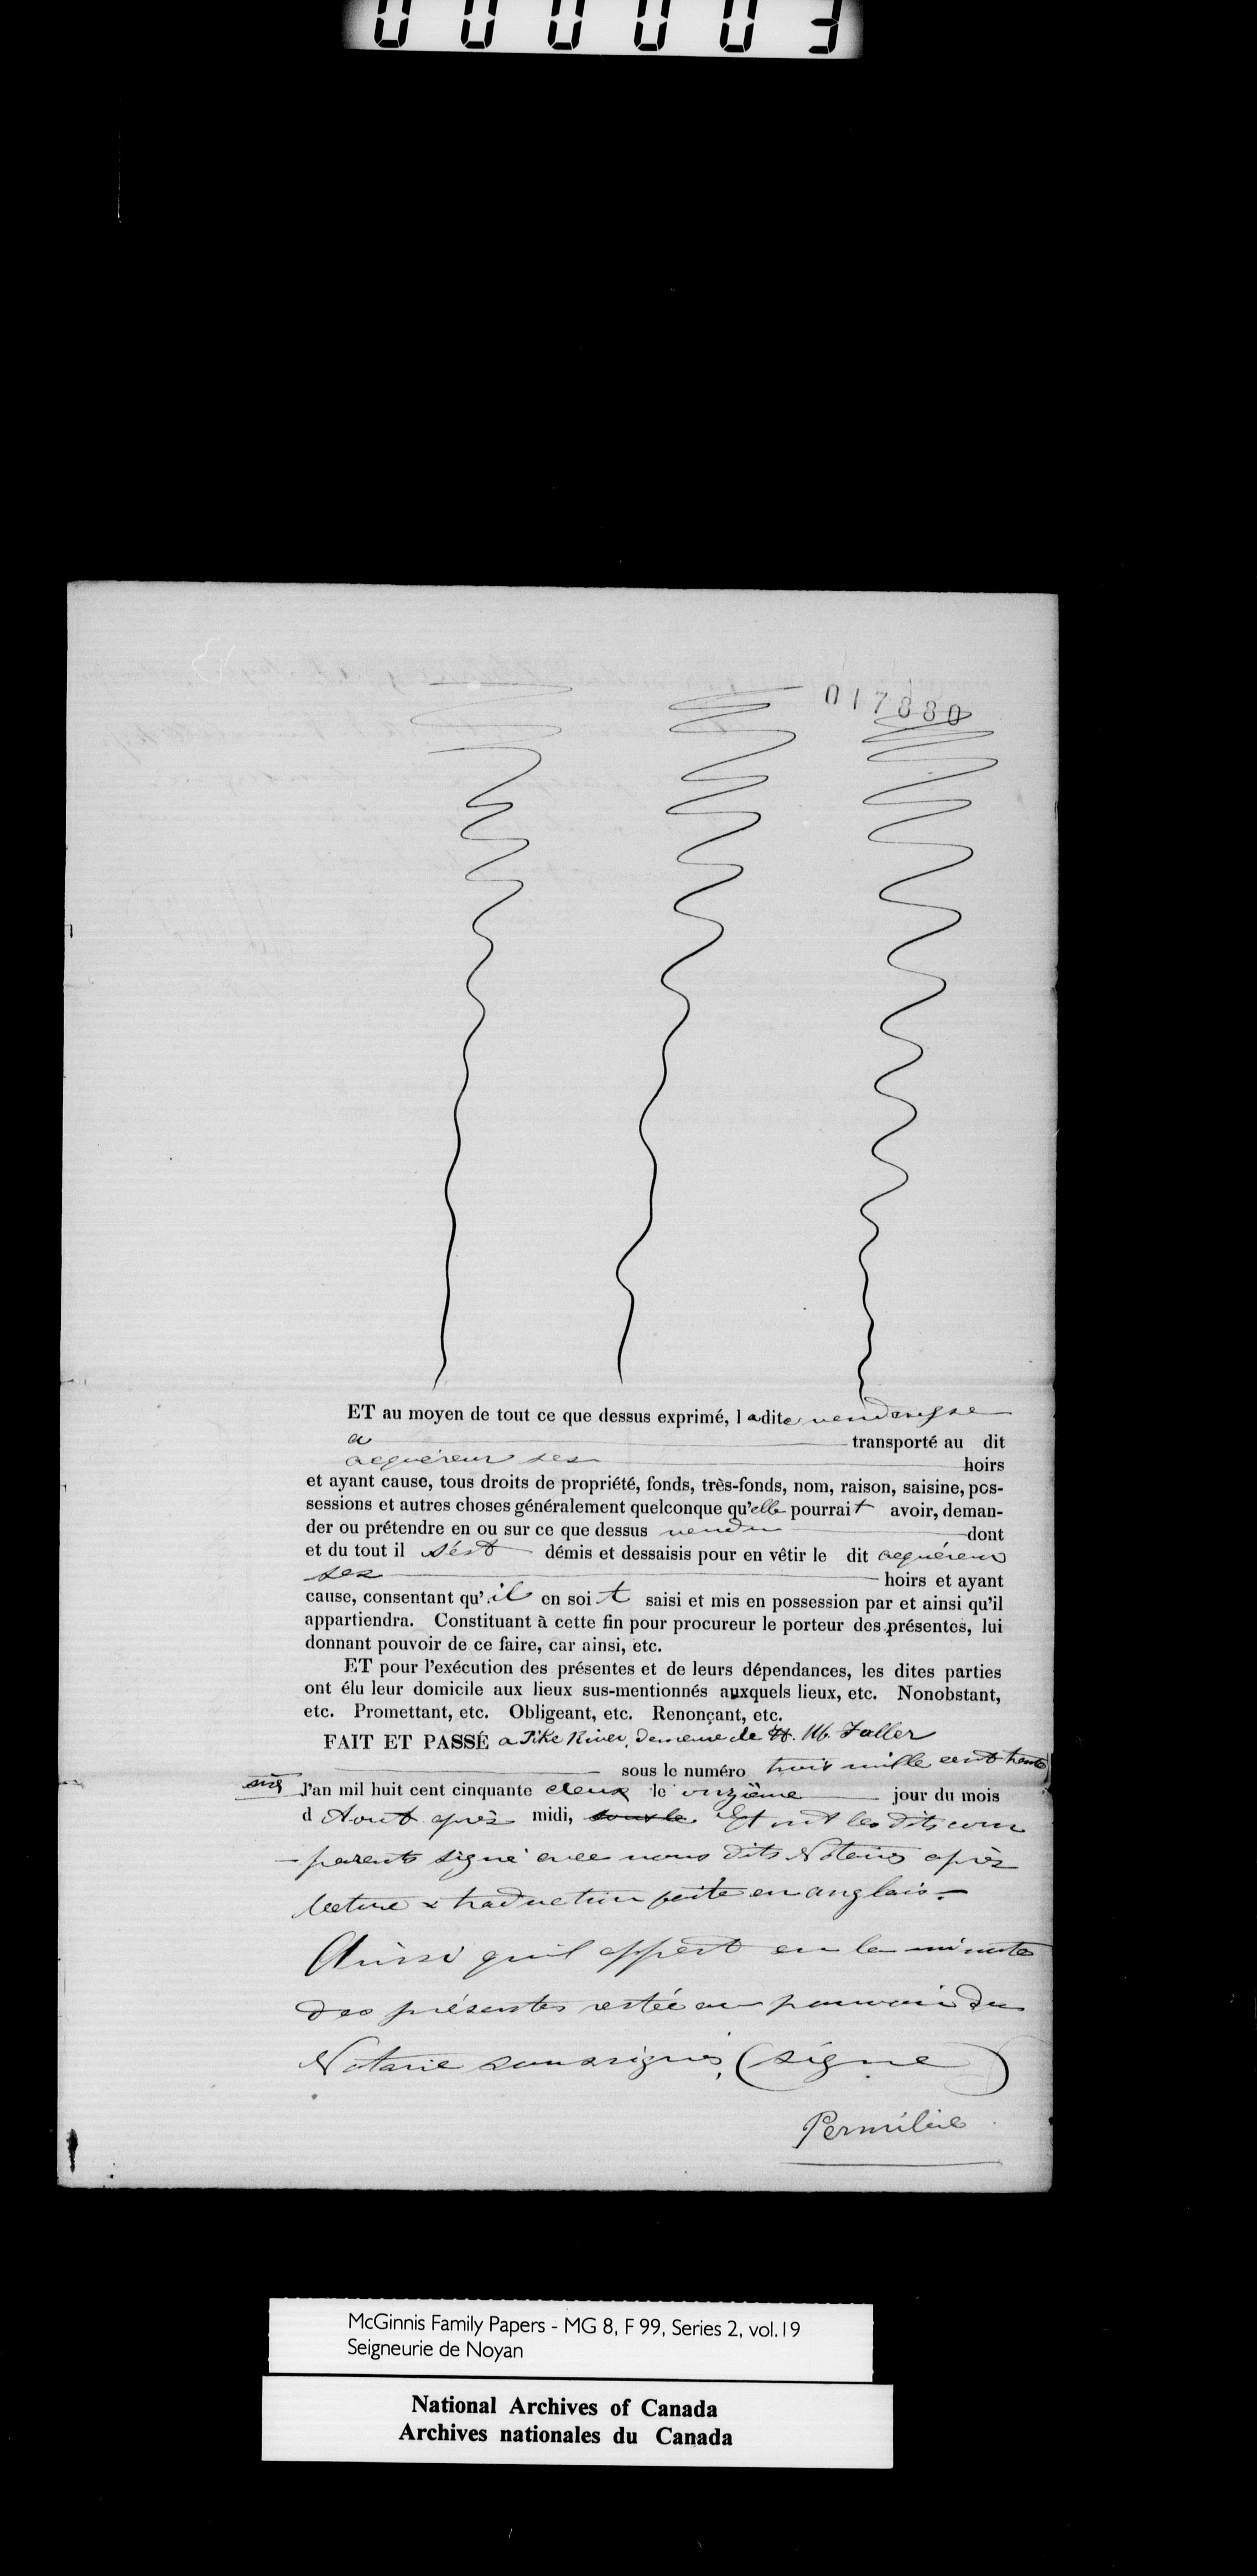 000003
017880
ET au moyen de tout ce que dessus exprimé, l adite venderesse
a transporté au dit
acquéreur ses hoirs
et ayant cause, tous droits de propriété, fonds, très-fonds, nom, raison, saisine, pos-
sessions et autres choses généralement quelconque qu'elle pourrait avoir, deman-
der ou prétendre en ou sur ce que dessus vendu dont
et du tout il s'ést démis et dessaisis pour en vêtir le dit acquéreur
ses hoirs et ayant
cause, consentant qu'il en soit saisi et mis en possession par et ainsi qu'il
appartiendra. Constituant à cette fin pour procureur le porteur des présentes, lui
donnant pouvoir de ce faire, car ainsi, etc.
ET pour l'exécution des présentes et de leurs dépendances, les dites parties
ont élu leur domicile aux lieux sus-mentionnés auxquels lieux, etc. Nonobstant,
etc. Promettant, etc. Obligeant, etc. Renonçant, etc.
FAIT ET PASSÉ a Pike River, demeure de H. W. Faller
sous le numéro trois mille cent trente
six l'an mil huit cent cinquante deux le onzième jour du mois
d Aout après midi, sous le Et ont les dits com
-parents signé avec nous dits Notaires après
lecture & traduction faite en anglais.-
Ainsi qu'il appert en la minute
des présentes restée au pouvoir du
Notaire soussigné, (signé)
McGinnis Family Papers - MG 8, F 99, Series 2, vol.19
Seigneurie de Noyan
National Archives of Canada
Archives nationales du Canada